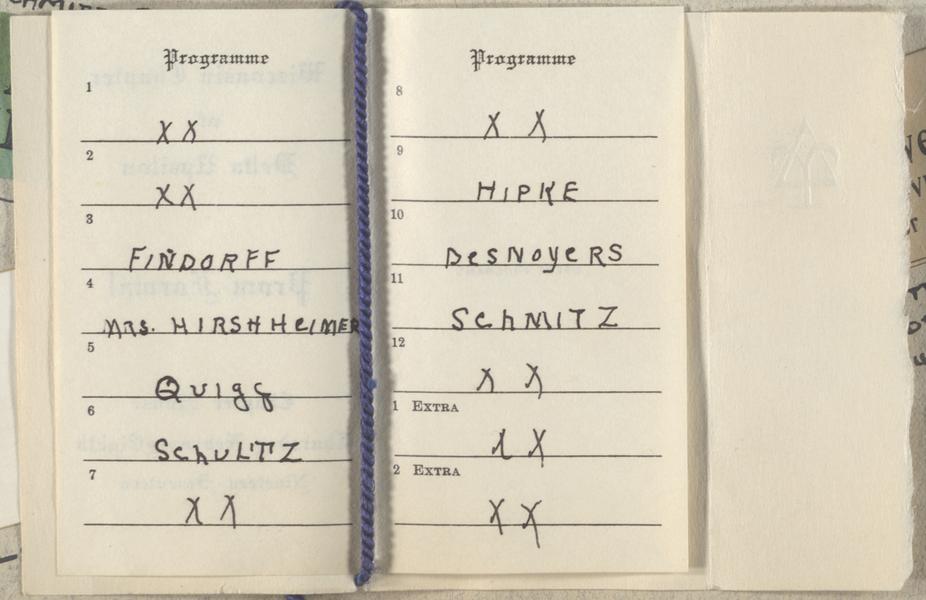 Programme
1
XX
2
XX
3
FINDORFF
4
MRS. HIRSHHEIMER
5
QUIGG
6
SchULTZ
7
X X
Programme
8
X X
9
HIPKE
10
DeSNOYeRS
11
SChMITZ
12
X X
1 EXTRA
X X
2 EXTRA
X X